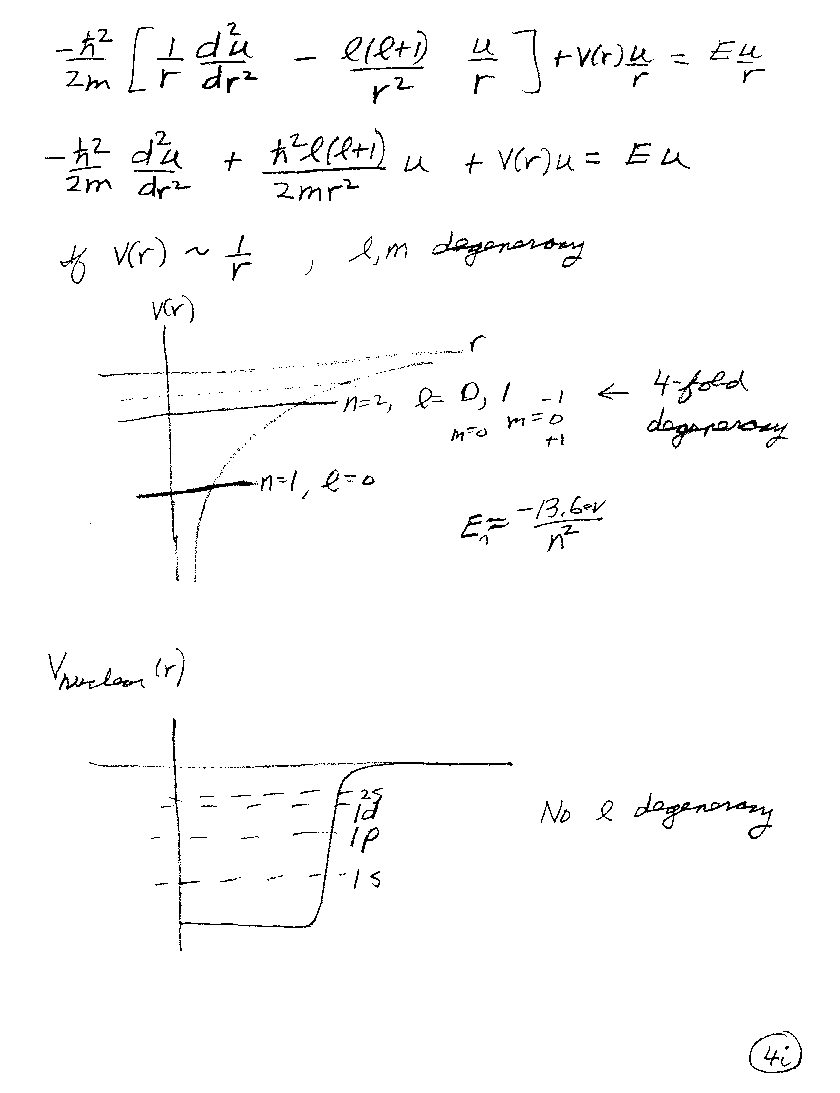 -ħ²/2m [ 1/r d²u/dr² - l(l+1)/r² u/r ] + V(r) u/r = E u/r
-ħ²/2m d²u/dr² + ħ²l(l+1)/2mr² u + V(r)u = E u
If V(r) ~ 1/r , l,m degeneracy
V(r)
r
n=2, l = 0, 1 ← 4-fold degeneracy
m=0 m = -1 0 +1
n=1, l=0
Eₙ = -13.6eV/n²
Vnuclear (r)
2s
1d
1p
1s
No l degeneracy
4i